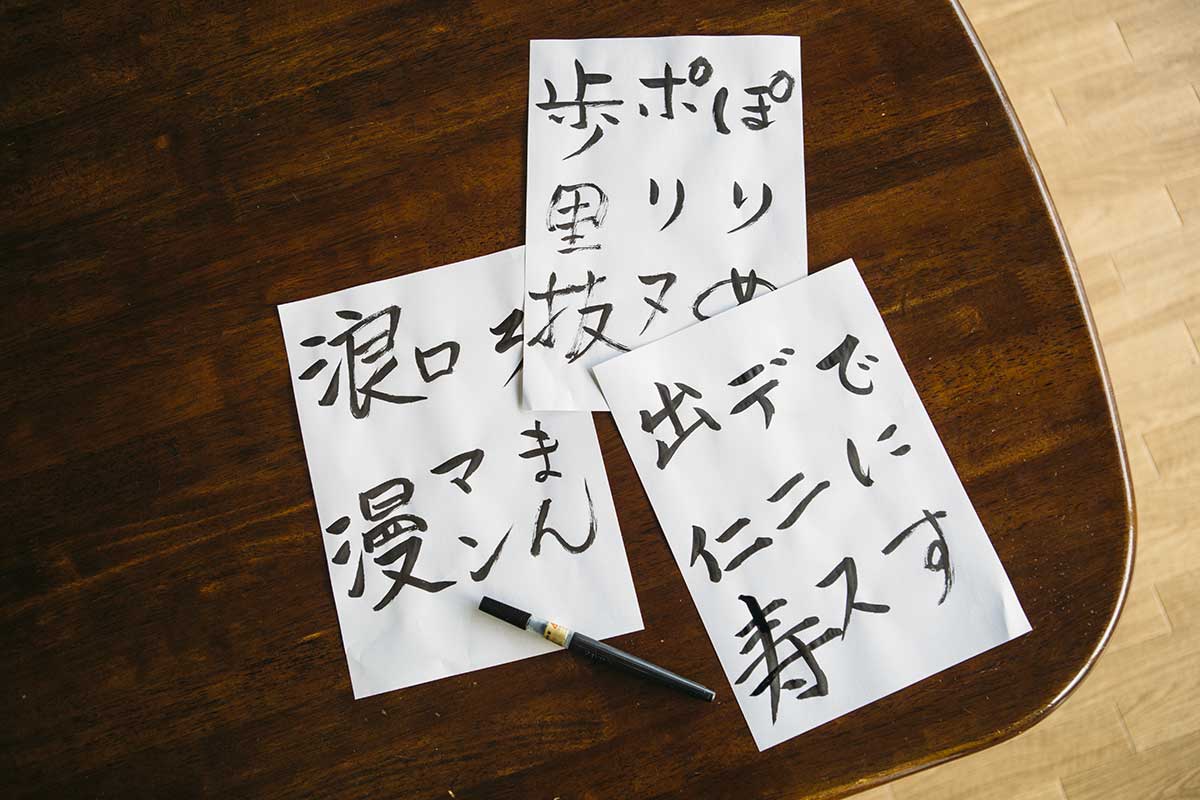 ぽりぬ
ポリヌ
歩里抜
ろまん
ロマン
浪漫
でにす
デニス
出仁寿